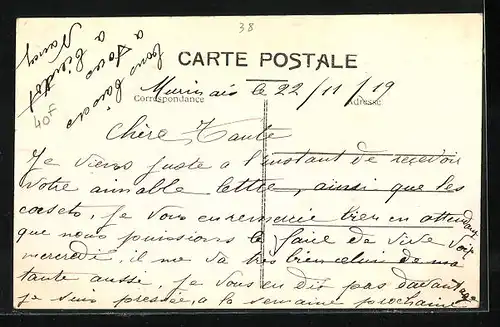 38
CARTE POSTALE
Correspondance
Adresse
Murinais le 22/11/19
Chère Tante
Je viens juste a l'instant de recevoir
votre aimable lettre, ainsi que les
corsets, je vous en remercie bien en attendant
que nous puissions le faire de vive voix
mercredi, il me va très bien celui de ma
tante aussi, je vous en dit pas davantage
je suis pressée, a la semaine prochaine
bons baisers
a tous
a bientôt
40F